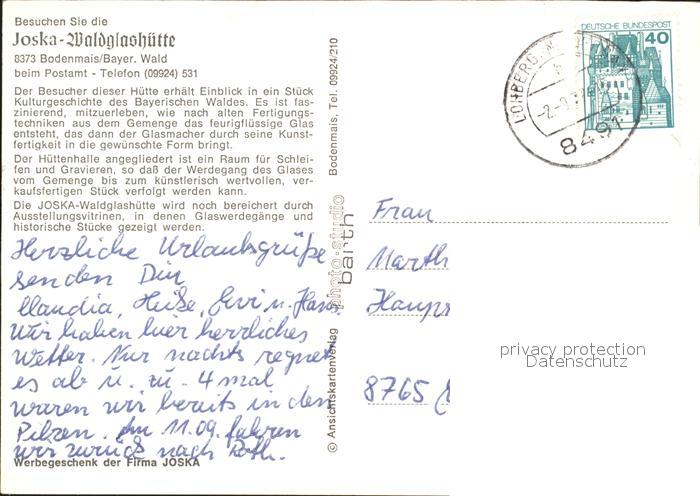 Besuchen Sie die
Joska-Waldglashütte
8373 Bodenmais/Bayer. Wald
beim Postamt - Telefon (09924) 531
Der Besucher dieser Hütte erhält Einblick in ein Stück
Kulturgeschichte des Bayerischen Waldes. Es ist fas-
zinierend, mitzuerleben, wie nach alten Fertigungs-
techniken aus dem Gemenge das feurigflüssige Glas
entsteht, das dann der Glasmacher durch seine Kunst-
fertigkeit in die gewünschte Form bringt.
Der Hüttenhalle angegliedert ist ein Raum für Schlei-
fen und Gravieren, so daß der Werdegang des Glases
vom Gemenge bis zum künstlerisch wertvollen, ver-
kaufsfertigen Stück verfolgt werden kann.
Die JOSKA-Waldglashütte wird noch bereichert durch
Ausstellungsvitrinen, in denen Glaswerdegänge und
historische Stücke gezeigt werden.
Herzliche Urlaubsgrüße
senden Dir
Claudia, Heike, Evi u. Hans
Wir haben hier herrliches
Wetter. Nur nachts regnet
es ab u. zu. 4 mal
waren wir bereits in den
Pilzen. Am 11.09. fahren
wir zurück nach Roth.
Werbegeschenk der Firma JOSKA
© Ansichtskartenverlag photo-studio barth Bodenmais, Tel. 09924/210
DEUTSCHE BUNDESPOST
40
LOHBERG
8491
Frau
Marth
Haupt
8765
privacy protection
Datenschutz